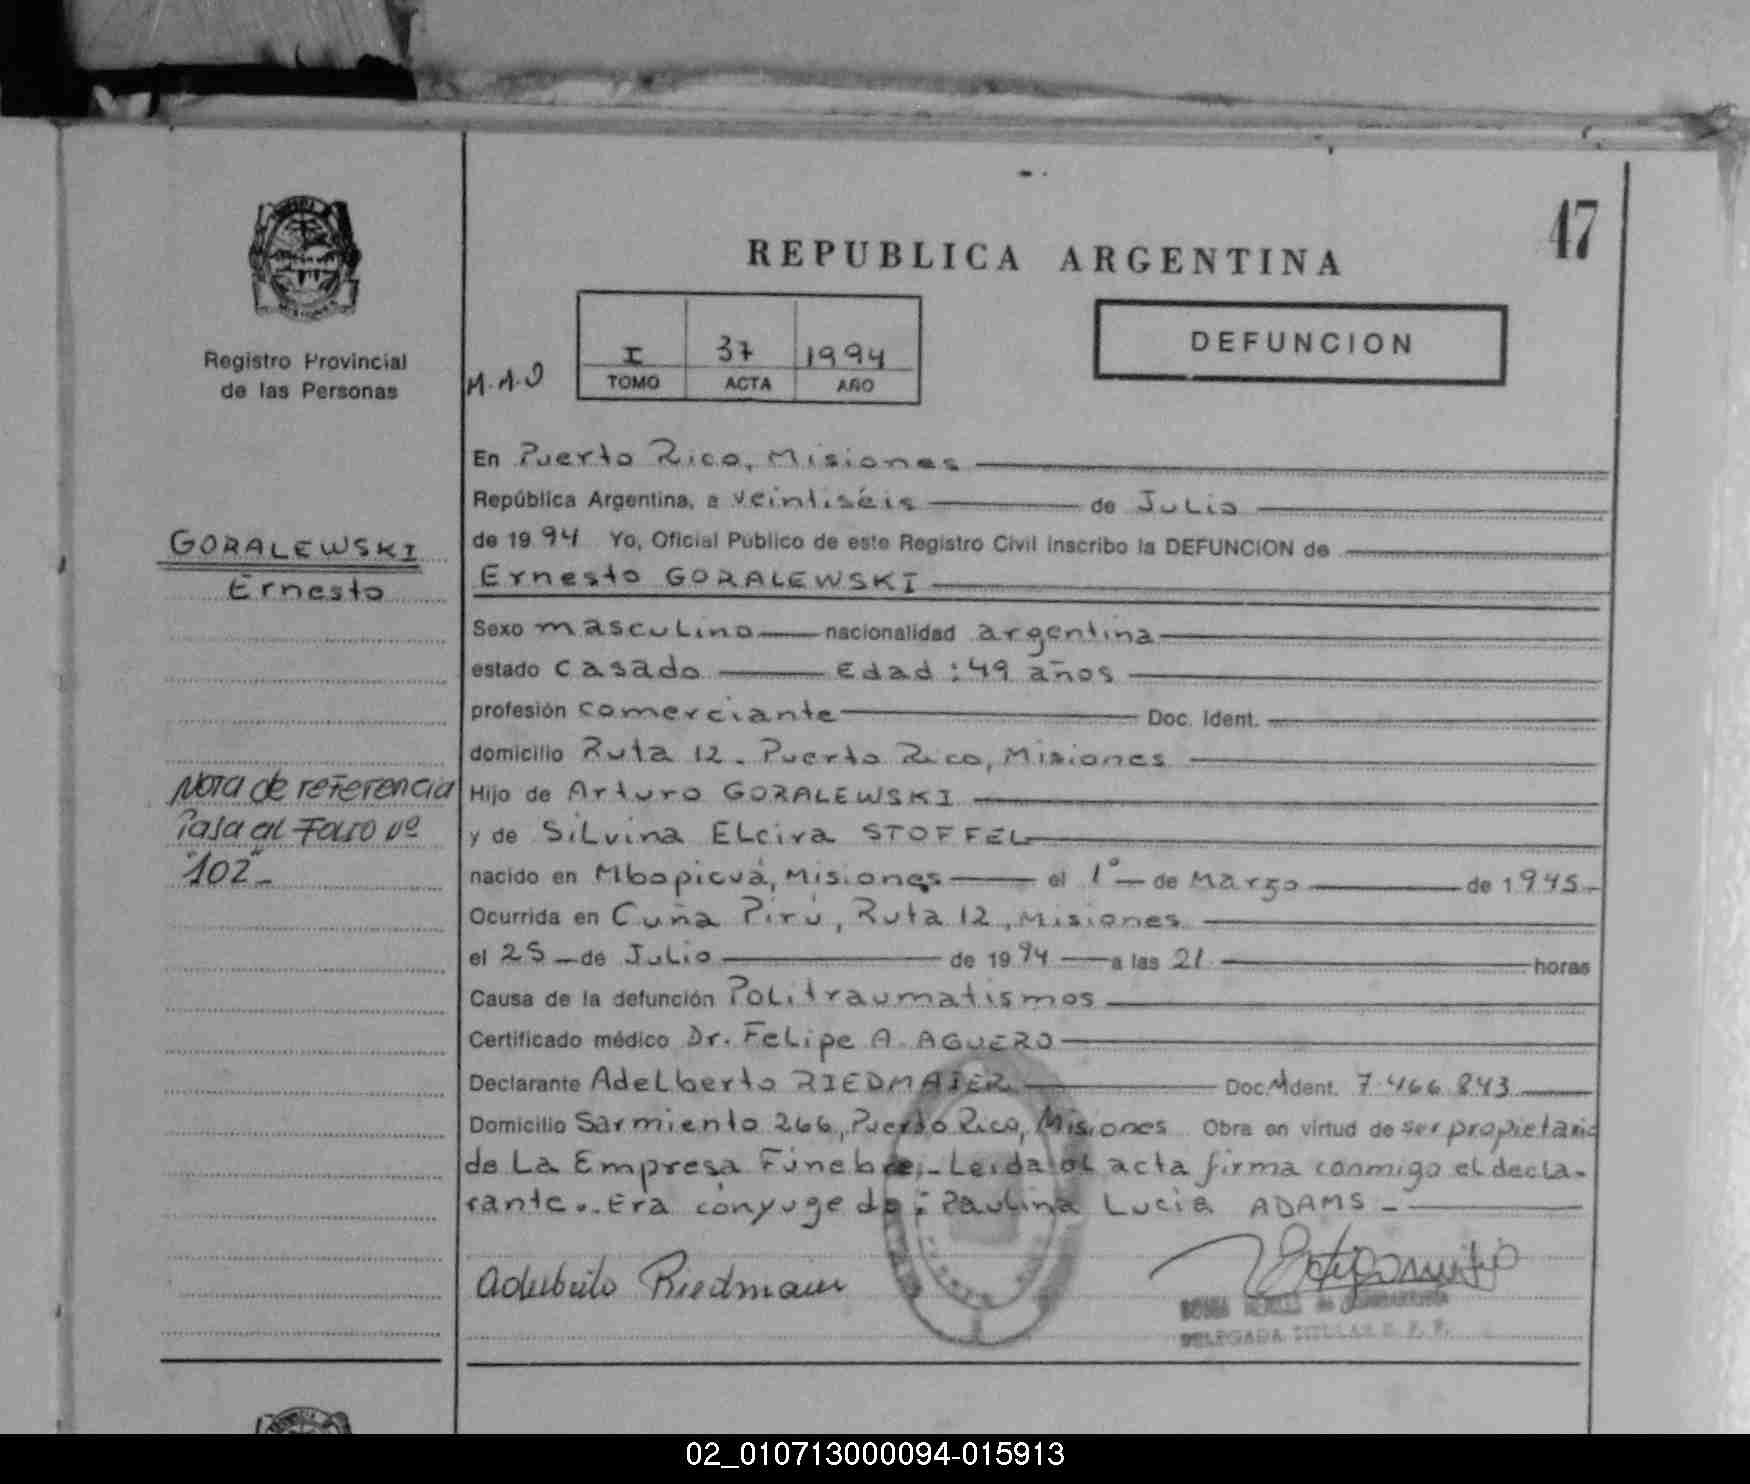 47
REPUBLICA ARGENTINA
DEFUNCION
Registro Provincial
de las Personas
M.A.O
I 37 1994
TOMO ACTA AÑO
En Puerto Rico, Misiones
República Argentina, a veintiséis de Julio
GORALEWSKI
Ernesto
de 1994 Yo, Oficial Público de este Registro Civil inscribo la DEFUNCION de
Ernesto GORALEWSKI
Sexo masculino nacionalidad argentina
estado casado Edad: 49 años
profesión comerciante Doc. Ident.
domicilio Ruta 12. Puerto Rico, Misiones
Nota de referencia
Pasa al Folio nº
"102"-
Hijo de Arturo GORALEWSKI
y de Silvina Elcira STOFFEL
nacido en Mbopicuá, Misiones el 1º de Marzo de 1945-
Ocurrida en Cuña Pirú, Ruta 12, Misiones
el 25 de Julio de 1994 a las 21 horas
Causa de la defunción Politraumatismos
Certificado médico Dr. Felipe A. AGUERO
Declarante Adelberto RIEDMAIER Doc. Ident. 7.466.843
Domicilio Sarmiento 266, Puerto Rico, Misiones Obra en virtud de ser propietario
de La Empresa Fúnebre.- Leída el acta firma conmigo el decla-
rante.. Era cónyuge de: Paulina Lucia ADAMS -
Adelberto Riedmaier
DELEGADA TITULAR
02_010713000094-015913